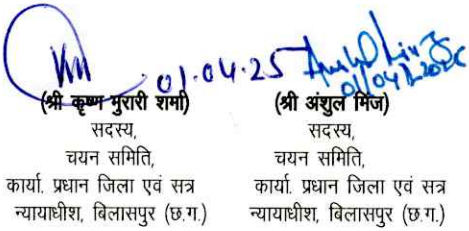 01.04.25
01/04/2025
(श्री कृष्ण मुरारी शर्मा)
सदस्य,
चयन समिति,
कार्या. प्रधान जिला एवं सत्र
न्यायाधीश, बिलासपुर (छ.ग.)
(श्री अंशुल मिंज)
सदस्य,
चयन समिति,
कार्या. प्रधान जिला एवं सत्र
न्यायाधीश, बिलासपुर (छ.ग.)